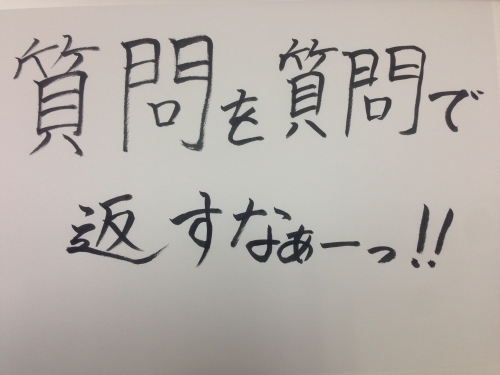 質問を質問で
返すなぁーっ!!